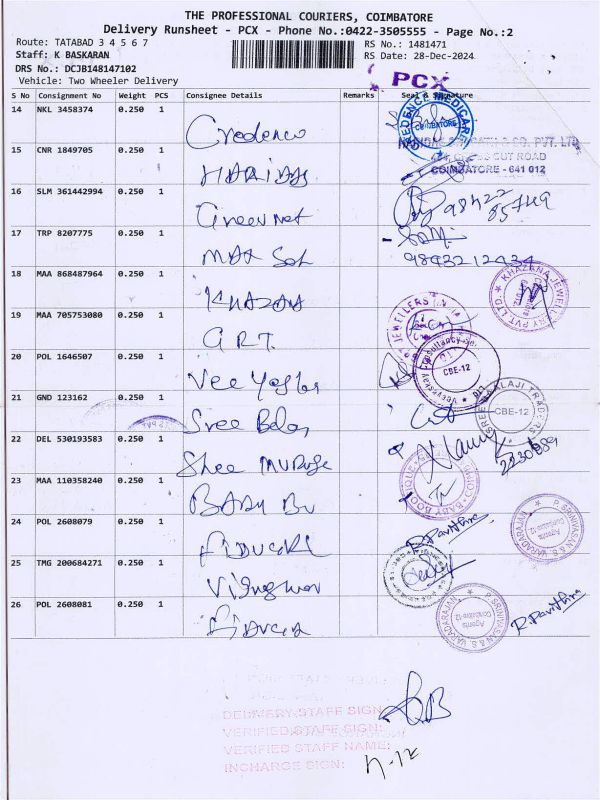 THE PROFESSIONAL COURIERS, COIMBATORE
Delivery Runsheet - PCX - Phone No.:0422-3505555 - Page No.:2
Route: TATABAD 3 4 5 6 7
RS No.: 1481471
Staff: K BASKARAN
RS Date: 28-Dec-2024
DRS No.: DCJB148147102
Vehicle: Two Wheeler Delivery
PCX
S No Consignment No Weight PCS Consignee Details Remarks Seal & Signature
14 NKL 3458374 0.250 1 Credence
CREDENCE MEDICARE COIMBATORE
15 CNR 1849705 0.250 1 HARIDAS
CO. PVT. LTD.
CUT ROAD
COIMBATORE - 641 012
16 SLM 361442994 0.250 1 Greennet
17 TRP 8207775 0.250 1 MAX Sol
18 MAA 868487964 0.250 1 KHAZANA
KHAZANA JEWELLERY PVT. LTD.
19 MAA 705753080 0.250 1 GRT
JEWELLERS
20 POL 1646507 0.250 1
CBE-12
21 GND 123162 0.250 1 Sree
SREE BALAJI TRADERS
CBE-12
22 DEL 530193583 0.250 1 Shee
23 MAA 110358240 0.250 1
24 POL 2608079 0.250 1
R. Pavithra
P. SRINIVASAN & S. VARADARAJAN
Agents
Coimbatore-12
25 TMG 200684271 0.250 1
26 POL 2608081 0.250 1
P. SRINIVASAN & S. VARADARAJAN
Agents
Coimbatore-12
R. Pavithra
DELIVERY STAFF SIGN:
VERIFIED STAFF SIGN:
VERIFIED STAFF NAME:
INCHARGE SIGN: